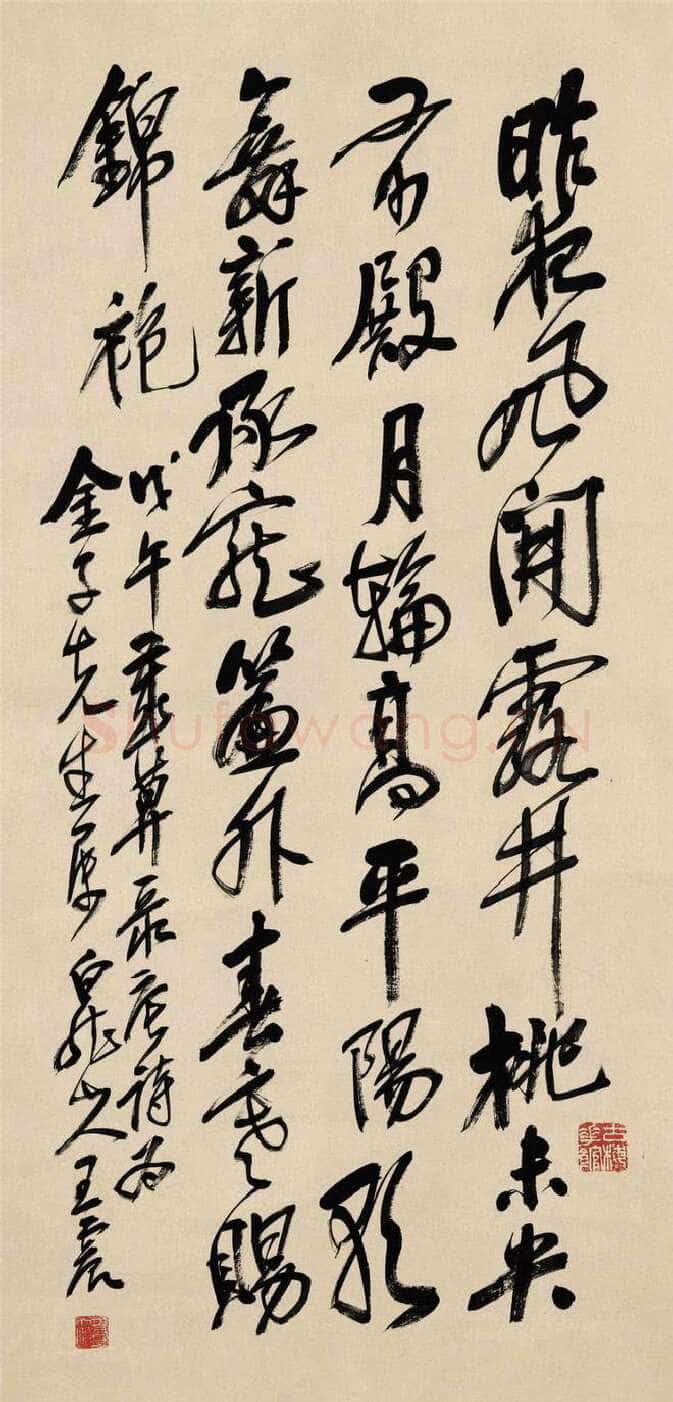 昨夜風開露井桃未央
前殿月輪高平陽歌
舞新承寵簾外春寒賜
錦袍
戊午錄唐詩為
金子先生屬 白龍山人王震
Shufawang.CN